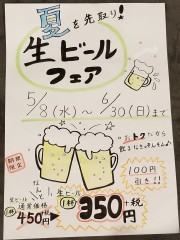 夏を先取り!
生ビール
フェア
5/8(水)~6/30(日)まで
おトクだから
100円
引き!!
期間
限定
なんと!
生ビール
通常価格
1杯 450円+税
生ビール
1杯 350円+税